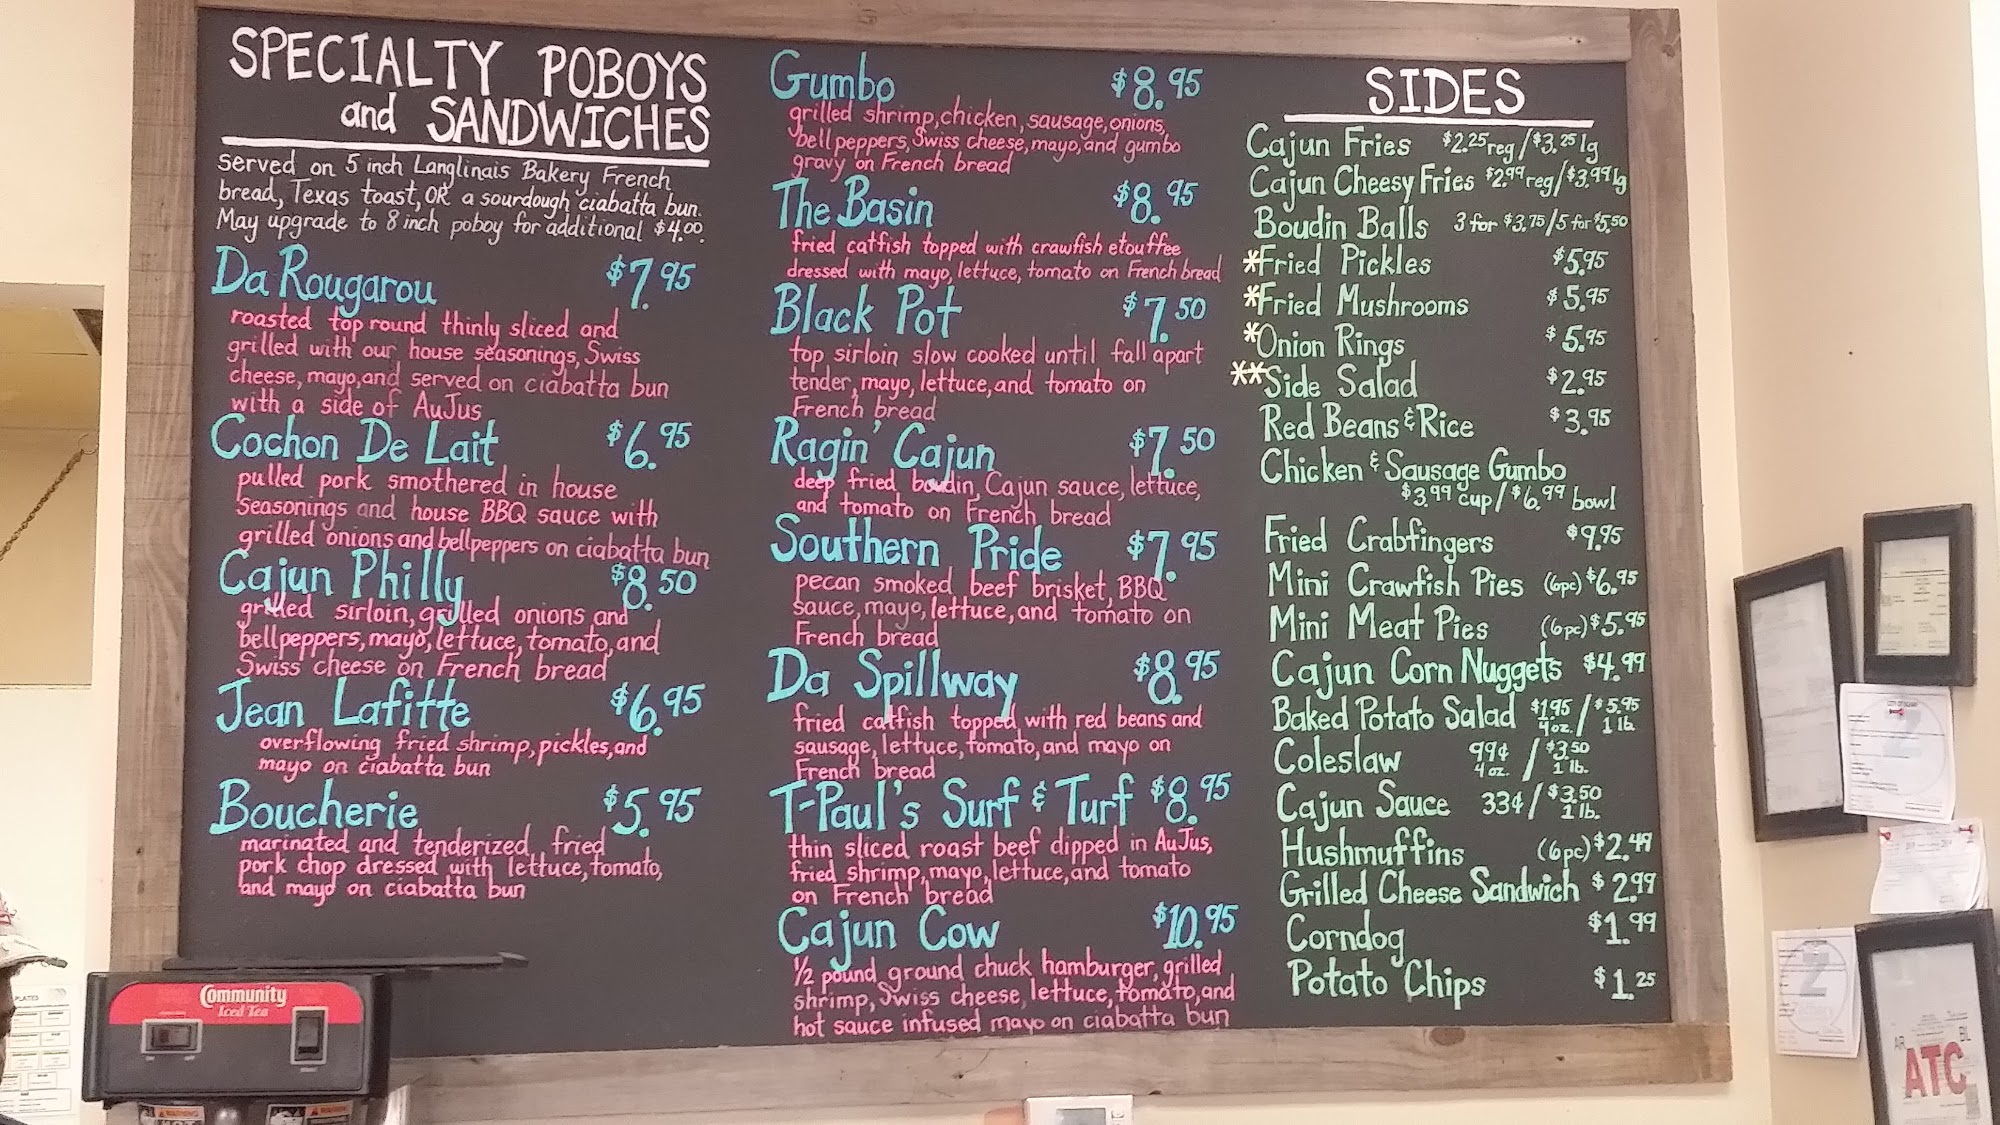 SPECIALTY POBOYS
and SANDWICHES
served on 5 inch Langlinais Bakery French
bread, Texas toast, OR a sourdough ciabatta bun.
May upgrade to 8 inch poboy for additional $4.00.
Da Rougarou $7.95
roasted top round thinly sliced and
grilled with our house seasonings, Swiss
cheese, mayo, and served on ciabatta bun
with a side of AuJus
Cochon De Lait $6.95
pulled pork smothered in house
seasonings and house BBQ sauce with
grilled onions and bellpeppers on ciabatta bun
Cajun Philly $8.50
grilled sirloin, grilled onions and
bellpeppers, mayo, lettuce, tomato, and
Swiss cheese on French bread
Jean Lafitte $6.95
overflowing fried shrimp, pickles, and
mayo on ciabatta bun
Boucherie $5.95
marinated and tenderized fried
pork chop dressed with lettuce, tomato,
and mayo on ciabatta bun
Gumbo $8.95
grilled shrimp, chicken, sausage, onions,
bell peppers, Swiss cheese, mayo, and gumbo
gravy on French bread
The Basin $8.95
fried catfish topped with crawfish etouffee
dressed with mayo, lettuce, tomato on French bread
Black Pot $7.50
top sirloin slow cooked until fall apart
tender, mayo, lettuce, and tomato on
French bread
Ragin' Cajun $7.50
deep fried boudin, Cajun sauce, lettuce,
and tomato on French bread
Southern Pride $7.95
pecan smoked beef brisket, BBQ
sauce, mayo, lettuce, and tomato on
French bread
Da Spillway $8.95
fried catfish topped with red beans and
sausage, lettuce, tomato, and mayo on
French bread
T-Paul's Surf & Turf $8.95
thin sliced roast beef dipped in AuJus,
fried shrimp, mayo, lettuce, and tomato
on French bread
Cajun Cow $10.95
1/2 pound ground chuck hamburger, grilled
shrimp, Swiss cheese, lettuce, tomato, and
hot sauce infused mayo on ciabatta bun
SIDES
Cajun Fries $2.25 reg/$3.25 lg
Cajun Cheesy Fries $2.99 reg/$3.99 lg
Boudin Balls 3 for $3.75/5 for $5.50
*Fried Pickles $5.95
*Fried Mushrooms $5.95
*Onion Rings $5.95
**Side Salad $2.95
Red Beans & Rice $3.95
Chicken & Sausage Gumbo
$3.99 cup/$6.99 bowl
Fried Crabfingers $9.95
Mini Crawfish Pies (6pc) $6.95
Mini Meat Pies (6pc) $5.95
Cajun Corn Nuggets $4.99
Baked Potato Salad $1.95 4 oz. / $5.95 1 lb.
Coleslaw 99¢ 4 oz. / $3.50 1 lb.
Cajun Sauce 33¢ / $3.50 1 lb.
Hushmuffins (6pc) $2.49
Grilled Cheese Sandwich $2.99
Corndog $1.99
Potato Chips $1.25
Community
Iced Tea
PLATES
WARNING
HOT
WARNING
ATC